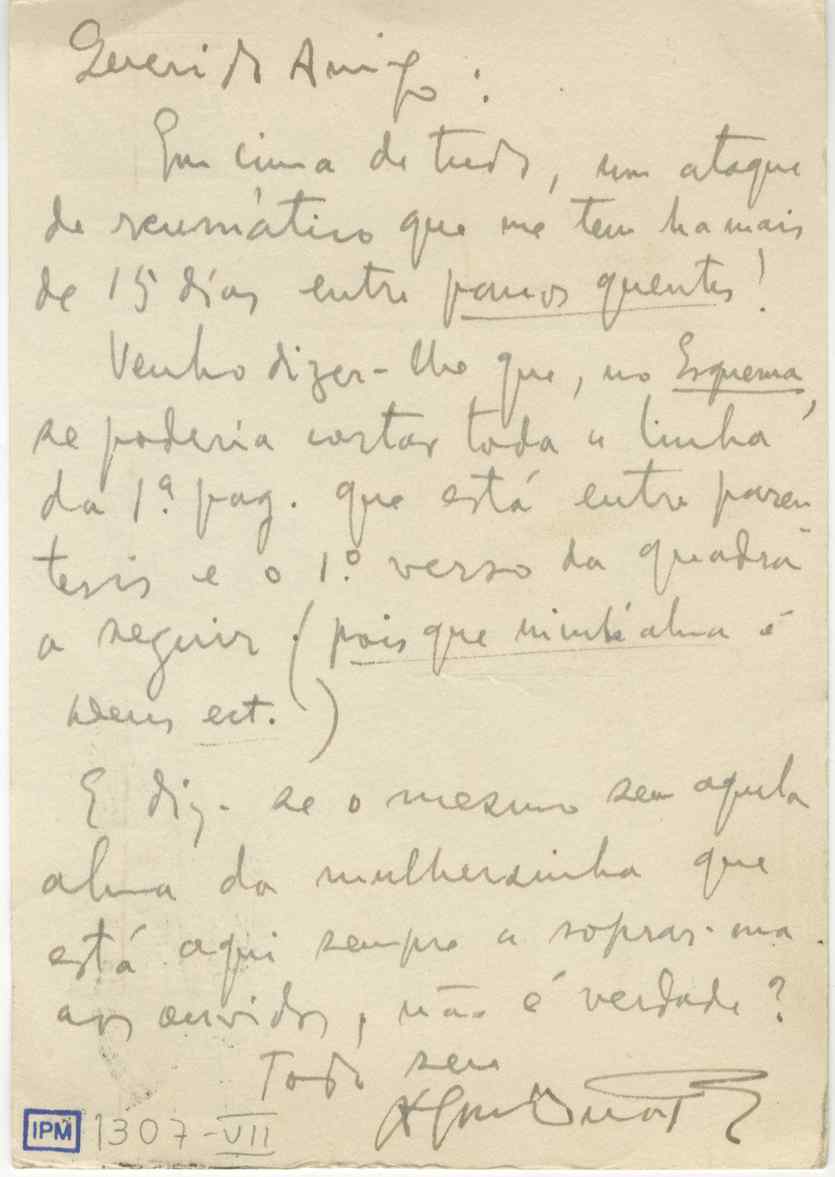 Querido Amigo:
Em cima de tudo, um ataque
de reumático que me tem ha mais
de 15 días entre panos quentes!
Venho dizer-lhe que, no Esquema,
se poderia cortar toda a linha
da 1ª pag. que está entre paren
tesis e o 1º verso da quadra
a seguir (pois que minh'alma é
Deus ect.)
E diz-se o mesmo sem aquela
alma da mulhersinha que
está aqui sempre a soprar-ma
aos ouvidos, não é verdade?
Todo seu
IPM 1307-VII